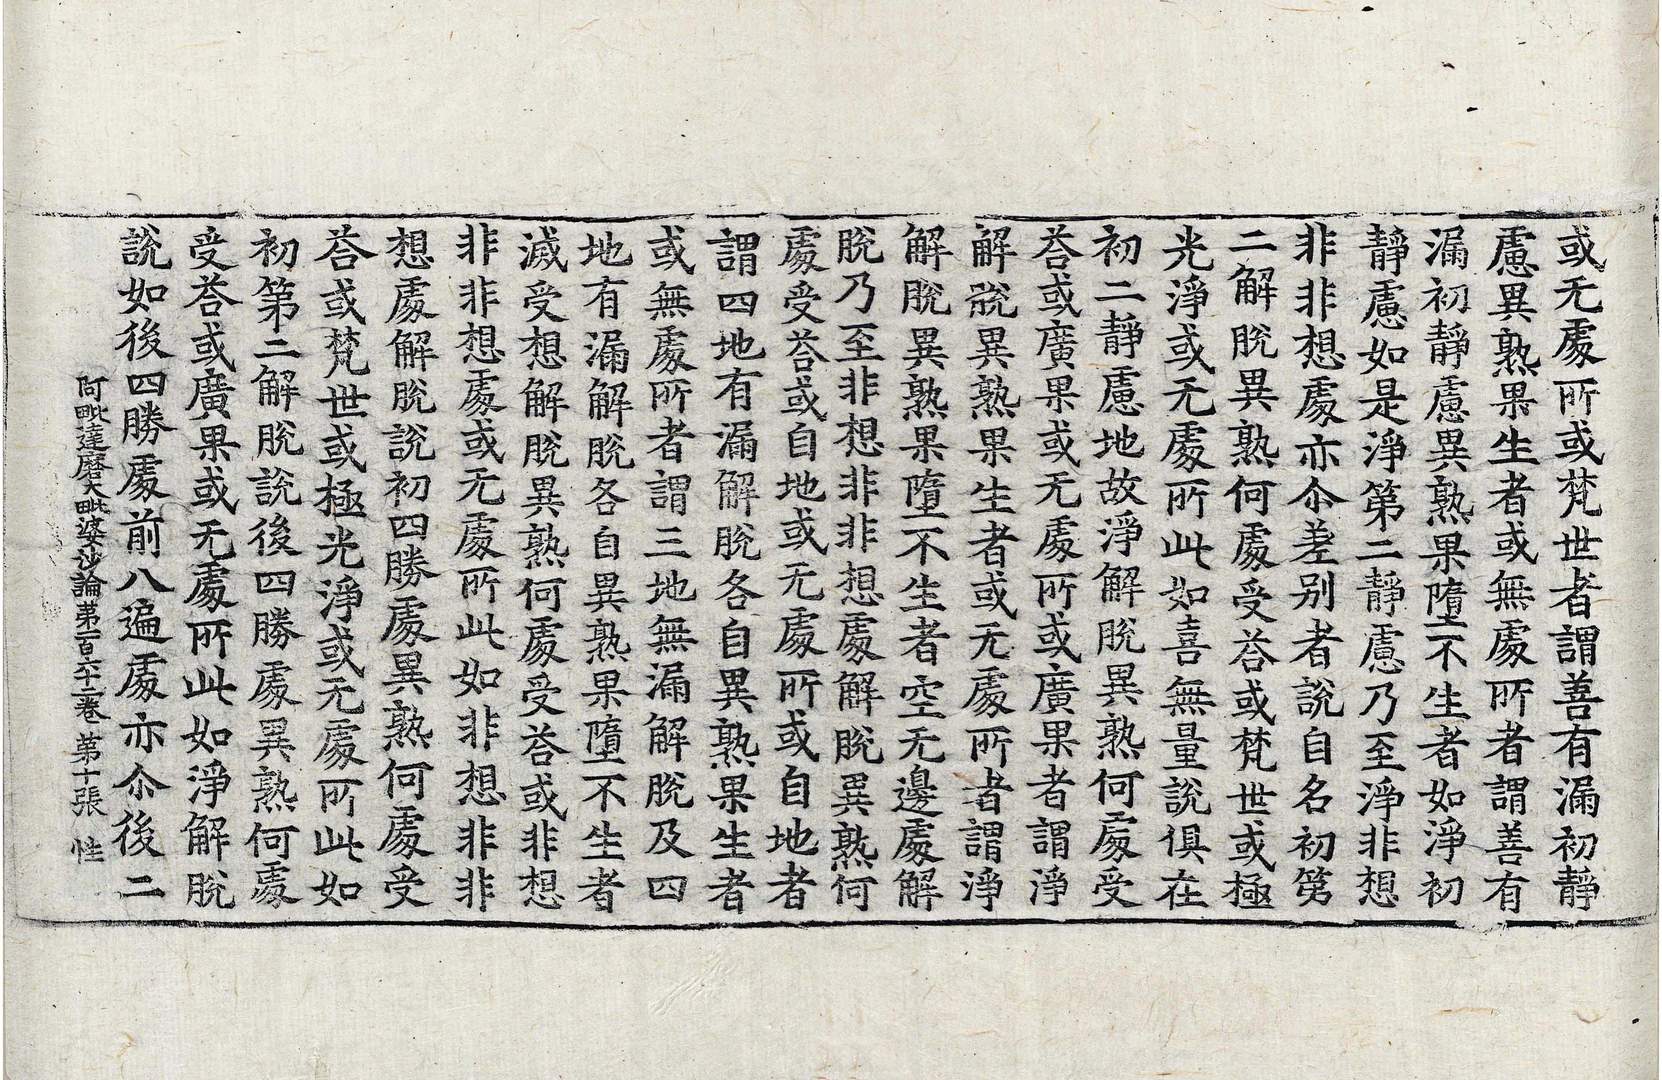 或无處所或梵世者謂善有漏初靜
慮異熟果生者或無處所者謂善有
漏初靜慮異熟果墮不生者如淨初
靜慮如是淨第二靜慮乃至淨非想
非非想處亦尒差别者說自名初第
二解脫異熟何處受荅或梵世或極
光淨或无處所此如喜無量說俱在
初二靜慮地故淨解脫異熟何處受
荅或廣果或无處所或廣果者謂淨
解脫異熟果生者或无處所者謂淨
解脫異熟果墮不生者空无邊處解
脫乃至非想非非想處解脫異熟何
處受荅或自地或无處所或自地者
謂四地有漏解脫各自異熟果生者
或無處所者謂三地無漏解脫及四
地有漏解脫各自異熟果墮不生者
滅受想解脫異熟何處受荅或非想
非非想處或无處所此如非想非非
想處解脫說初四勝處異熟何處受
荅或梵世或極光淨或无處所此如
初第二解脫說後四勝處異熟何處
受荅或廣果或无處所此如淨解脫
說如後四勝處前八遍處亦尒後二
阿毗達磨大毗婆沙論第一百六十二卷 第十張 性